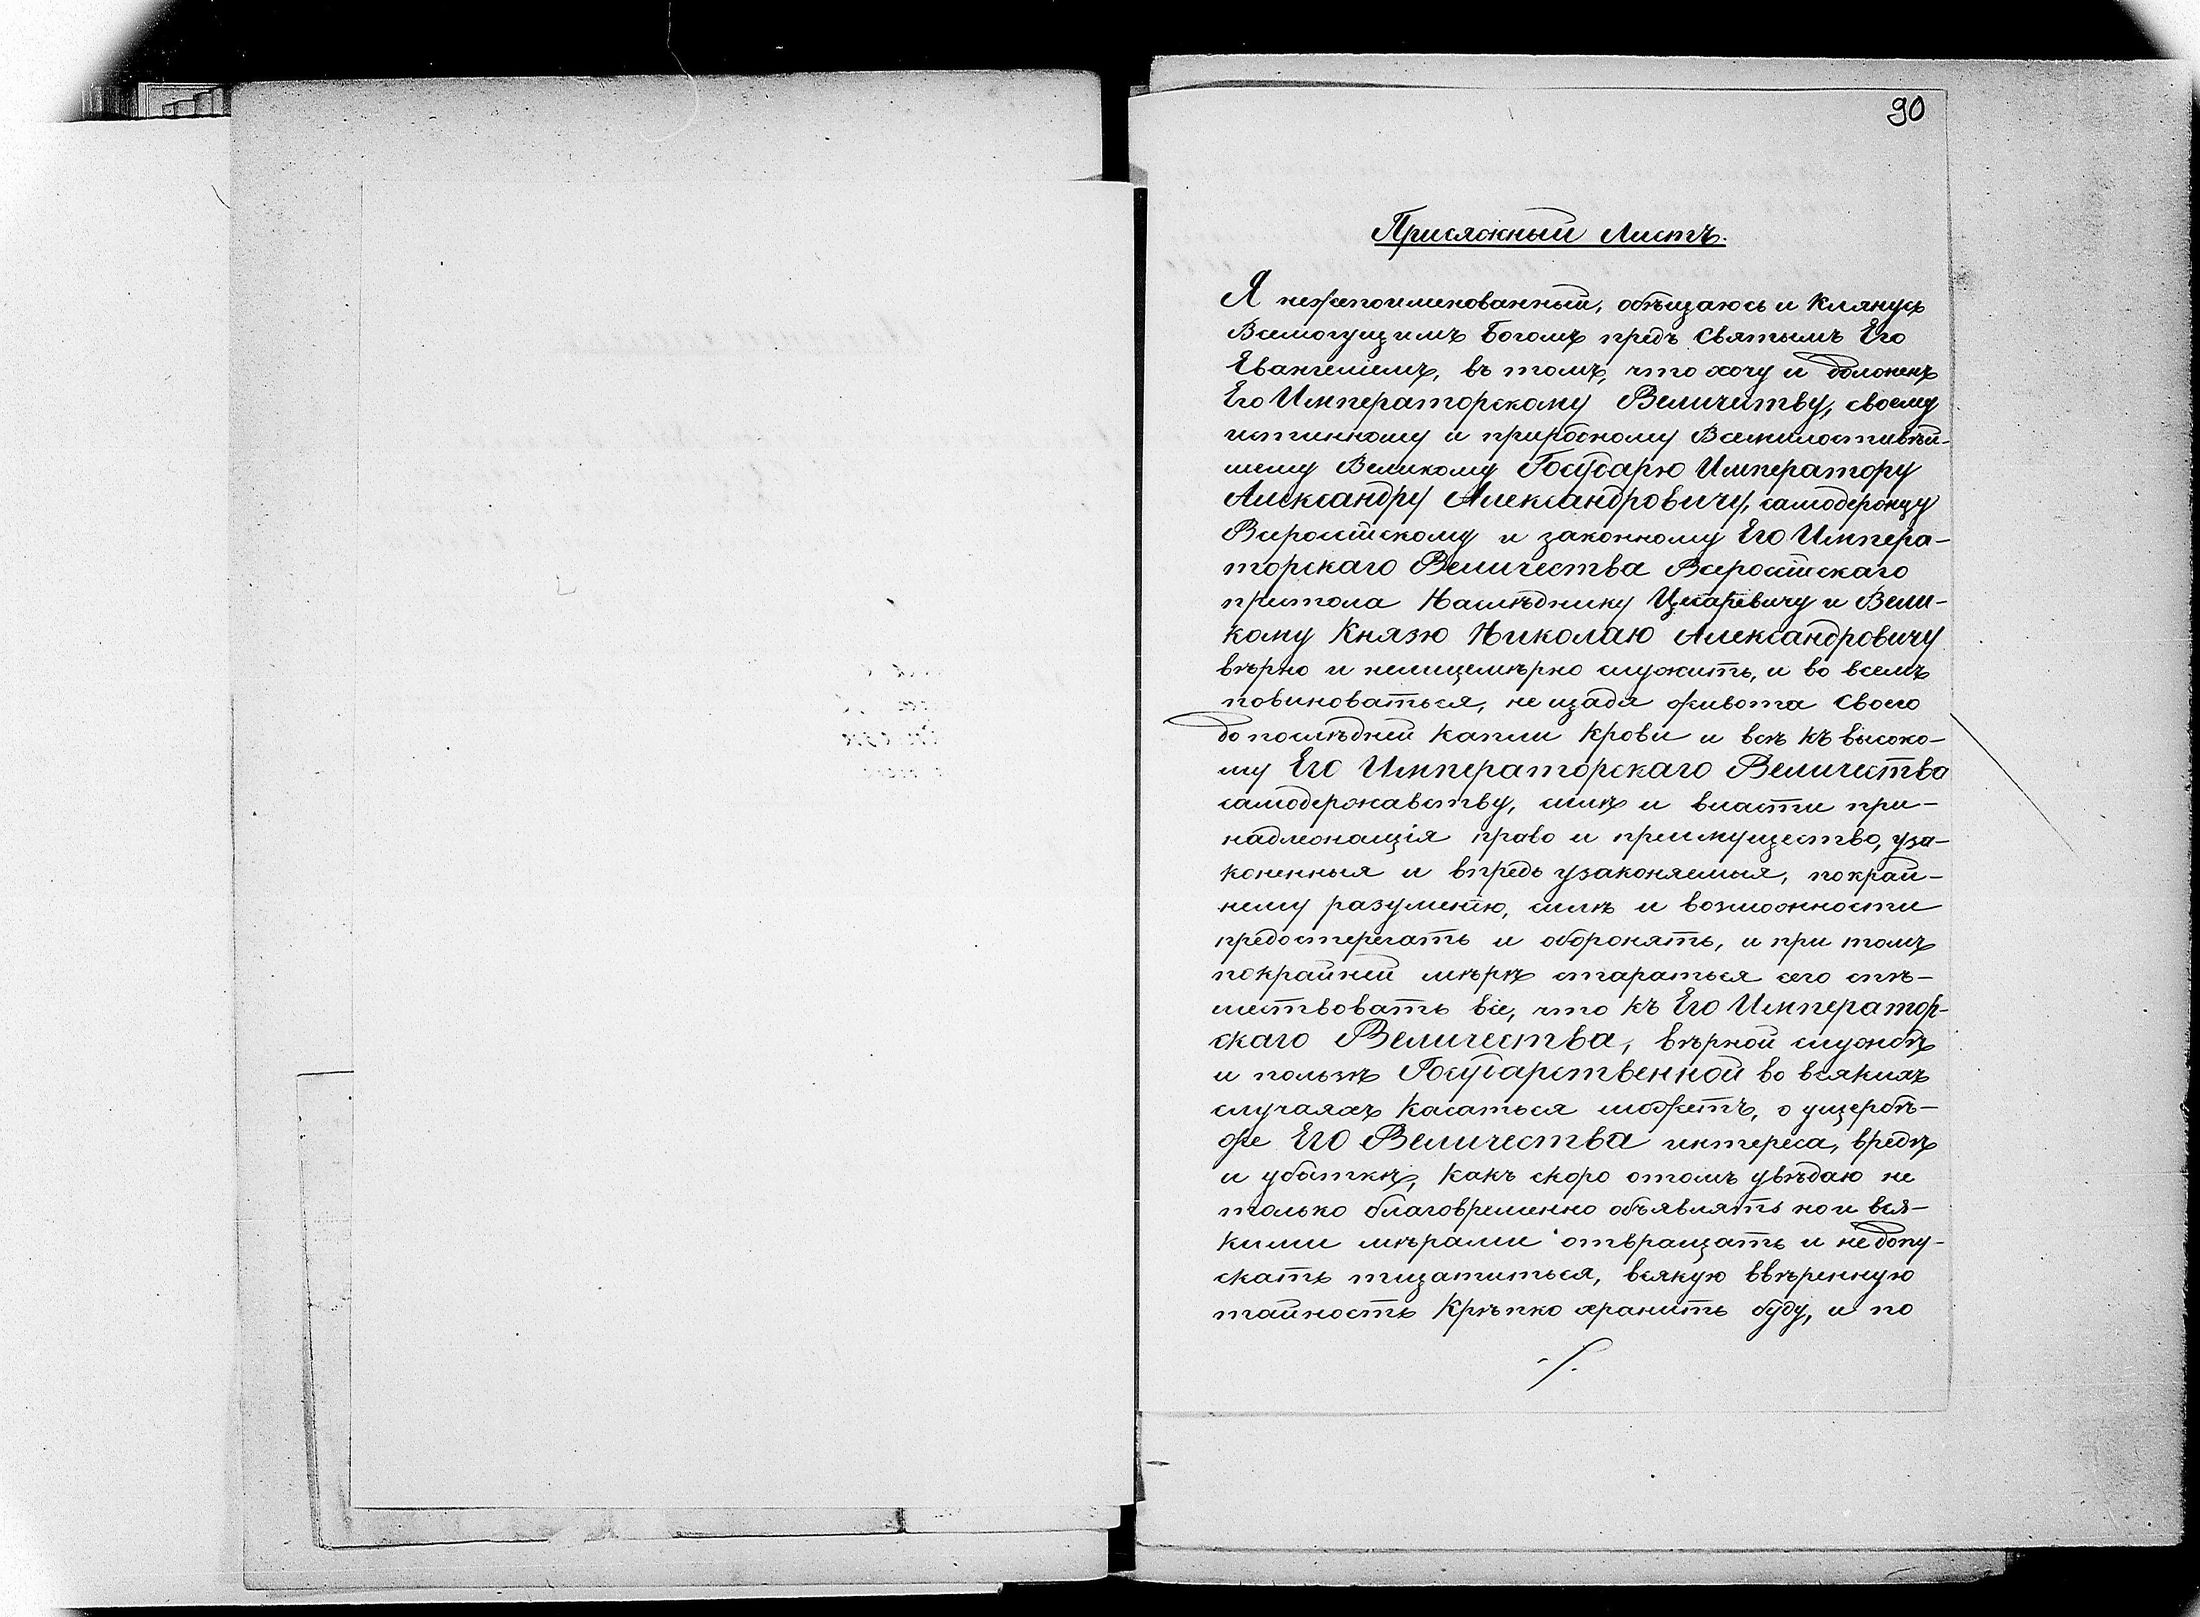 90
Присяжный Листъ.
Я нижепоименованный, обѣщаюсь и клянусь
Всемогущимъ Богомъ предъ Святымъ Его
Евангелiемъ, въ томъ, что хочу и долженъ
Его Императорскому Величеству, своему
истинному и природному Всемилостивѣй-
шему Великому Государю Императору
Александру Александровичу, самодержцу
Всероссiйскому и законному Его Импера-
торскаго Величества Всероссiйскаго
престола Наслѣднику Цесаревичу и Вели-
кому Князю Николаю Александровичу
вѣрно и нелицемѣрно служить, и во всемъ
повиноваться, не щадя живота своего
до послѣдней капли крови и всѣ къ высоко-
му Его Императорскаго Величества
самодержавству, силѣ и власти при-
надлежащiя право и преимущество, уза-
коненныя и впредь узаконяемыя, по край-
нему разуменiю, силѣ и возможности
предостерегать и оборонять, и при томъ
по крайней мѣрѣ стараться сего спѣ-
шествовать все, что къ Его Император-
скаго Величества, вѣрной службѣ
и пользѣ Государственной во всякихъ
случаяхъ касаться можетъ, о ущербѣ-
же Его Величества интереса, вредѣ
и убыткѣ, какъ скоро о томъ увѣдаю не
только благовременно объявлять но и вся-
кими мѣрами отвращать и не допу-
скать тщатиться, всякую ввѣренную
тайность крѣпко хранить буду, и по
-/.